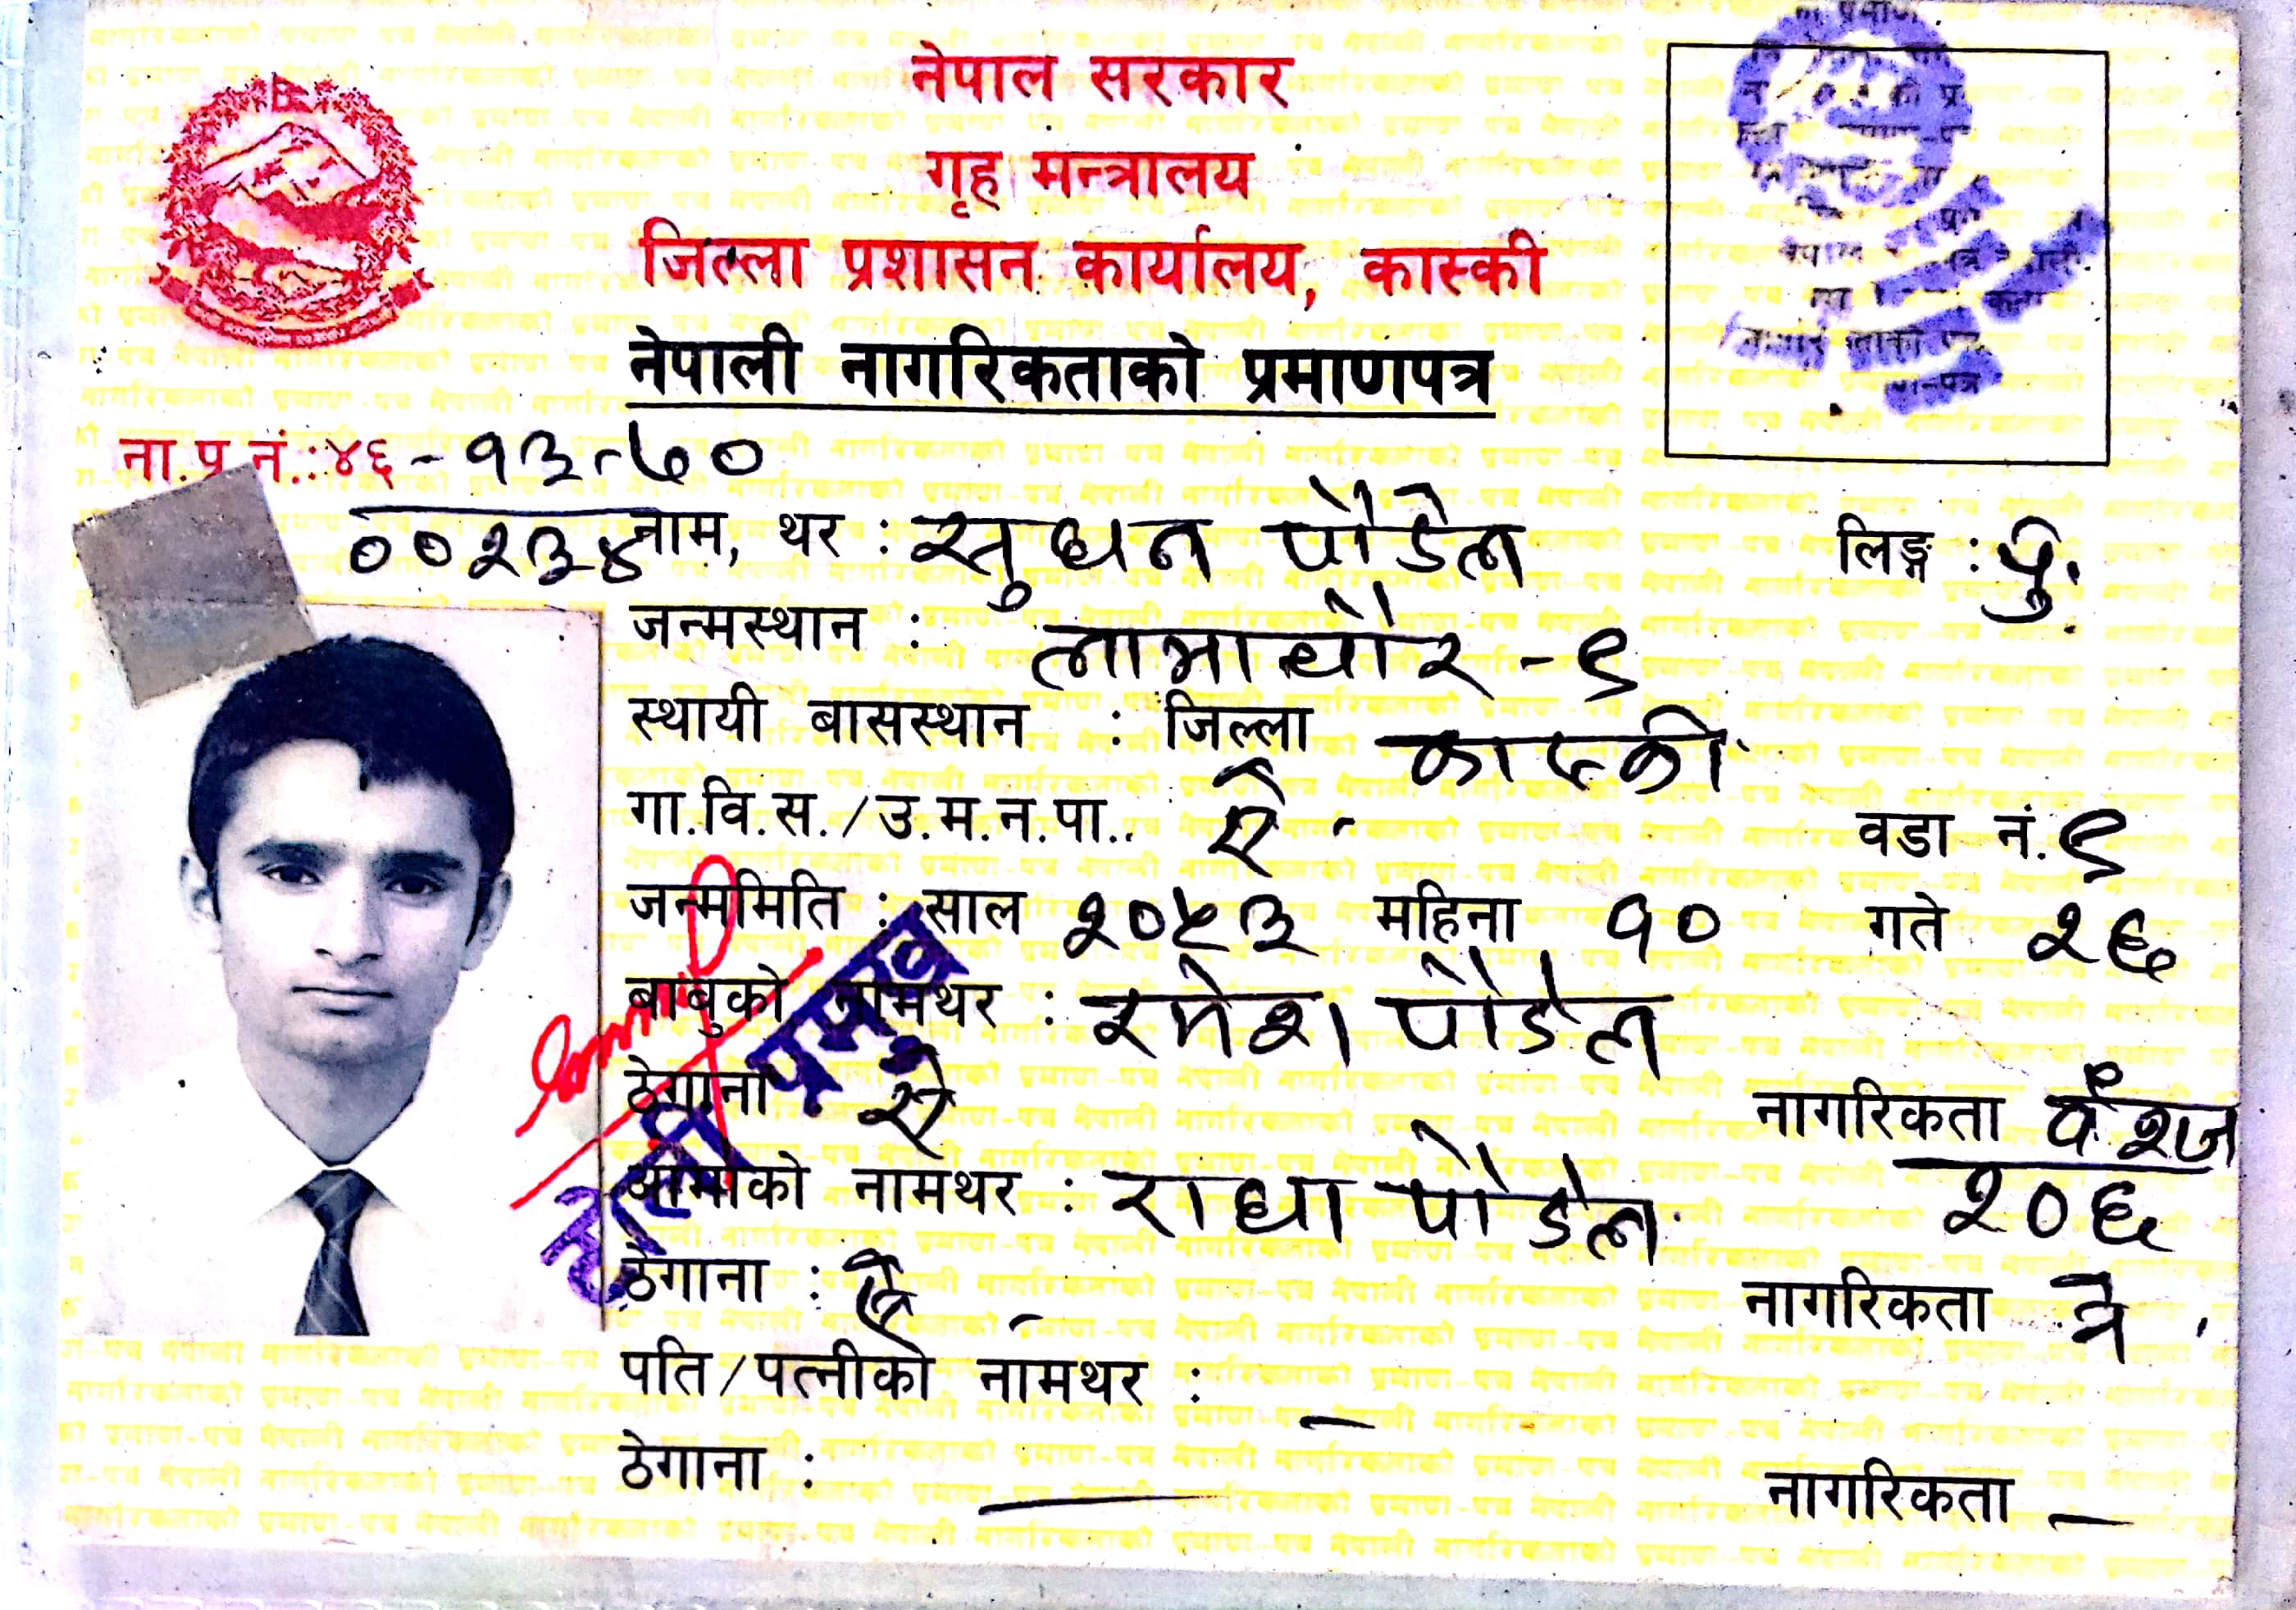 नेपाल सरकार
गृह मन्त्रालय
जिल्ला प्रशासन कार्यालय, कास्की
नेपाली नागरिकताको प्रमाणपत्र
ना.प्र.नं.:४६-१३-७०
००२३४
नाम, थर : सुधन पौडेल लिङ्ग : पु.
जन्मस्थान : लामाचौर -९
स्थायी बासस्थान : जिल्ला कास्की
गा.वि.स./उ.म.न.पा.. ऐ - वडा नं. ९
जन्ममिति : साल २०५३ महिना १० गते २६
बाबुको नामथर : रमेश पौडेल
ठेगाना : ऐ नागरिकता वंशज
२०६
आमाको नामथर : राधा पौडेल
ठेगाना : ऐ - नागरिकता
पति/पत्नीको नामथर : -
ठेगाना : — नागरिकता —